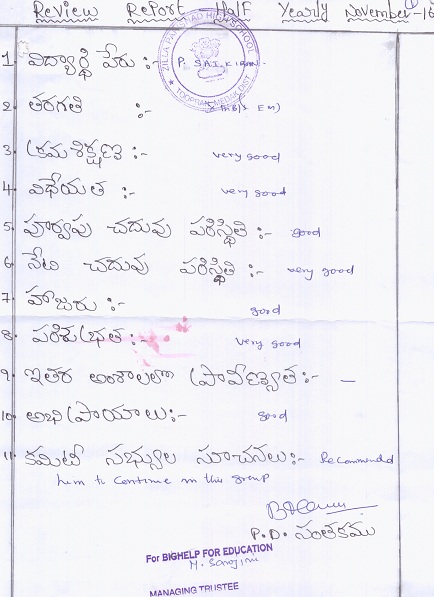 Review RePort Half Yearly November-16
1. విద్యార్థి పేరు :- P. SAI KIRAN.
2. తరగతి :-
3. క్రమశిక్షణ :- very good
4. విధేయత :- very good
5. పూర్వపు చదువు పరిస్థితి :- good
6. నేటి చదువు పరిస్థితి :- very good
7. హాజరు :- good
8. పరిశుభ్రత :- very good
9. ఇతర అంశాలలో ప్రావీణ్యత :- —
10. అభిప్రాయాలు :- good
11. కమిటీ సభ్యుల సూచనలు :- Recommended
him to continue in this group
P.D. సంతకము
For BIGHELP FOR EDUCATION
M. Sarojini
MANAGING TRUSTEE